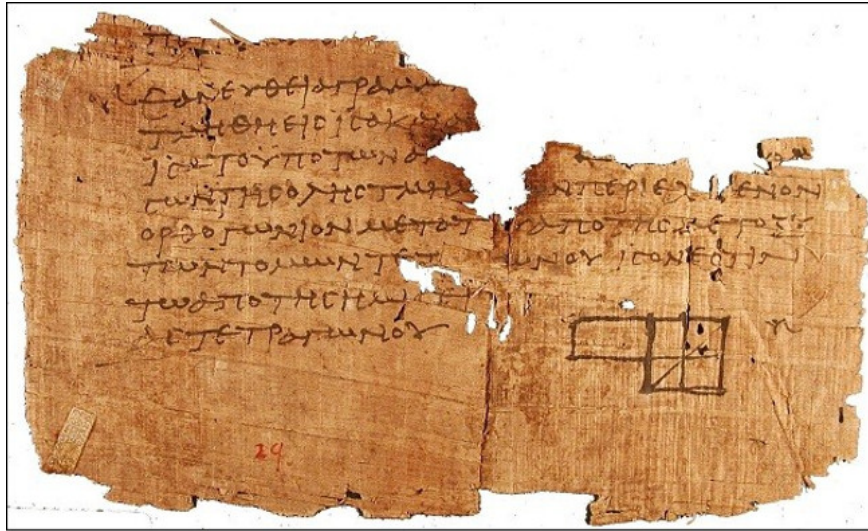 ΕΑΝ ΕΥΘΕΙΑ ΓΡΑΜΜ
ΤΜΗΘΗ ΕΙC ΙCΑ ΚΑΙ Α
ΙCΑ ΤΟ ΥΠΟ ΤΩΝ Α
CΩΝ ΤΗC ΟΛΗC ΤΜΗ ΩΝ ΠΕΡΙΕΧ ΜΕΝΟΝ
ΟΡΘΟΓΩΝΙΟΝ ΜΕΤΑ ΤΟΥ ΑΠΟ ΤΗC ΜΕΤΟΞΥ
ΤΩΝ ΤΟΜΩΝ ΤΕΤ ΩΝΟΥ ΙCΟΝ ΕCΤΙΝ
ΤΩ ΑΠΟ ΤΗC ΗΜΙ
ΑC ΤΕΤΡΑΓΩΝΟΥ
29